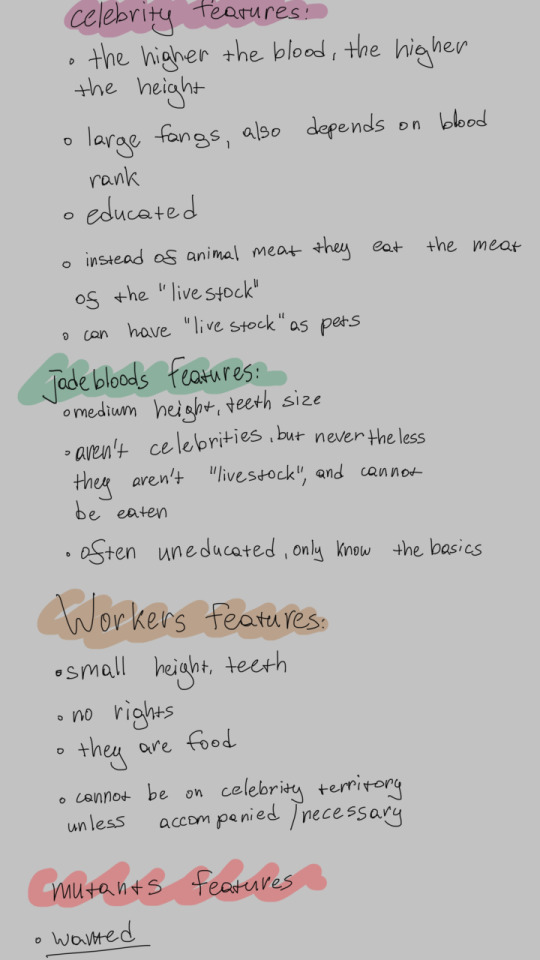 celebrity features:
• the higher the blood, the higher
the height
○ large fangs, also depends on blood
rank
○ educated
○ instead of animal meat they eat the meat
of the "livestock"
○ can have "livestock" as pets
Jadebloods features:
○ medium height, teeth size
• aren't celebrities, but nevertheless
they aren't "livestock", and cannot
be eaten
• often uneducated, only know the basics
Workers features:
• small height, teeth
• no rights
• they are food
• cannot be on celebrity territory
unless accompanied / necessary
mutants features
• wanted